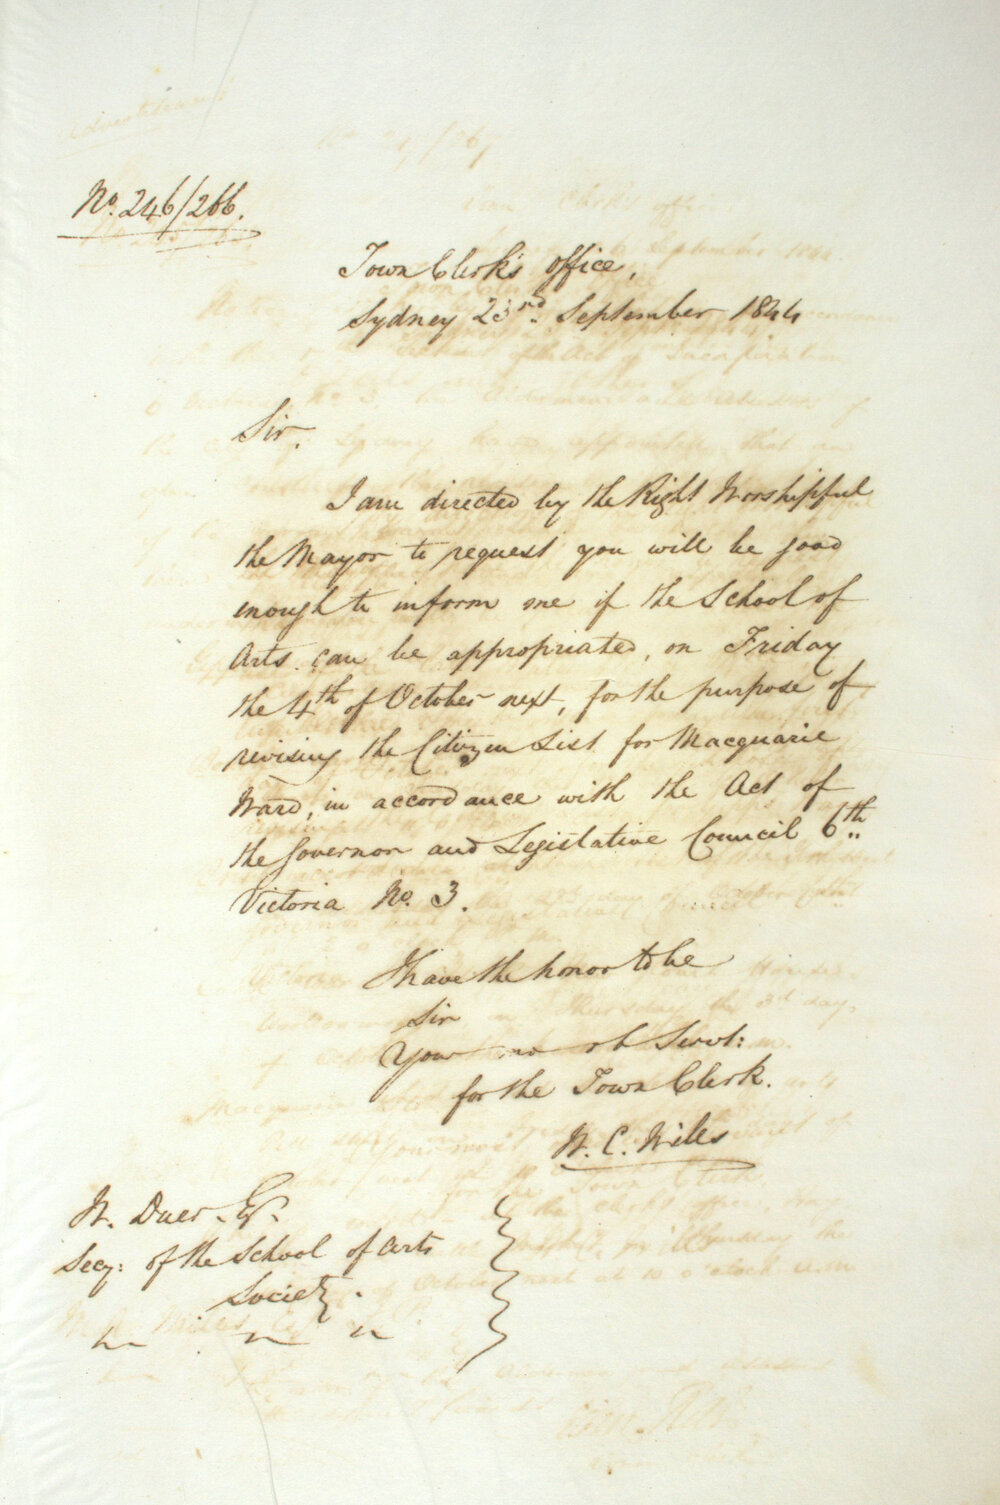 No. 246/266.
Town Clerk's office,
Sydney 23rd. September 1844
Sir,
I am directed by the Right Worshipful
the Mayor to request you will be good
enough to inform me if the School of
Arts can be appropriated, on Friday
the 4th of October next, for the purpose of
revising the Citizen List for Macquarie
Ward, in accordance with the Act of
the Governor and Legislative Council 6th..
Victoria No. 3.
I have the honor to be
Sir
Your mo ob Servt:
for the Town Clerk.
W. C. Wills
W. Duer. Esq.
Secy: of the School of Arts
Society.